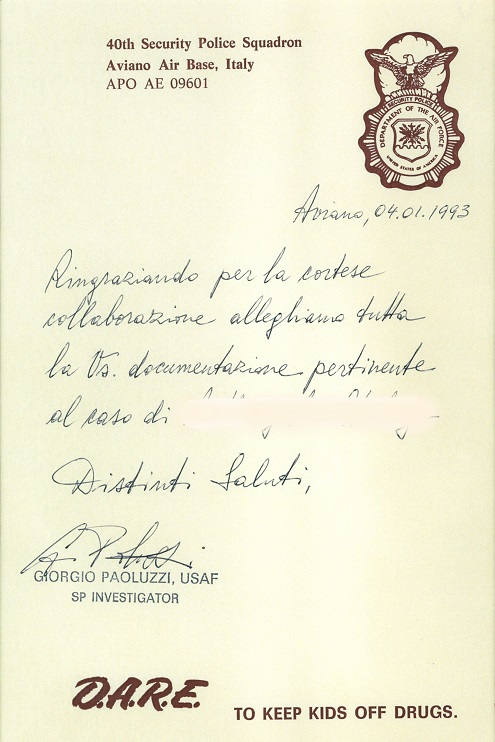 40th Security Police Squadron
Aviano Air Base, Italy
APO AE 09601
SECURITY POLICE
DEPARTMENT OF THE AIR FORCE
UNITED STATES OF AMERICA
Aviano, 04.01.1993
Ringraziando per la cortese
collaborazione alleghiamo tutta
la Vs. documentazione pertinente
al caso di
Distinti Saluti,
GIORGIO PAOLUZZI, USAF
SP INVESTIGATOR
D.A.R.E. TO KEEP KIDS OFF DRUGS.